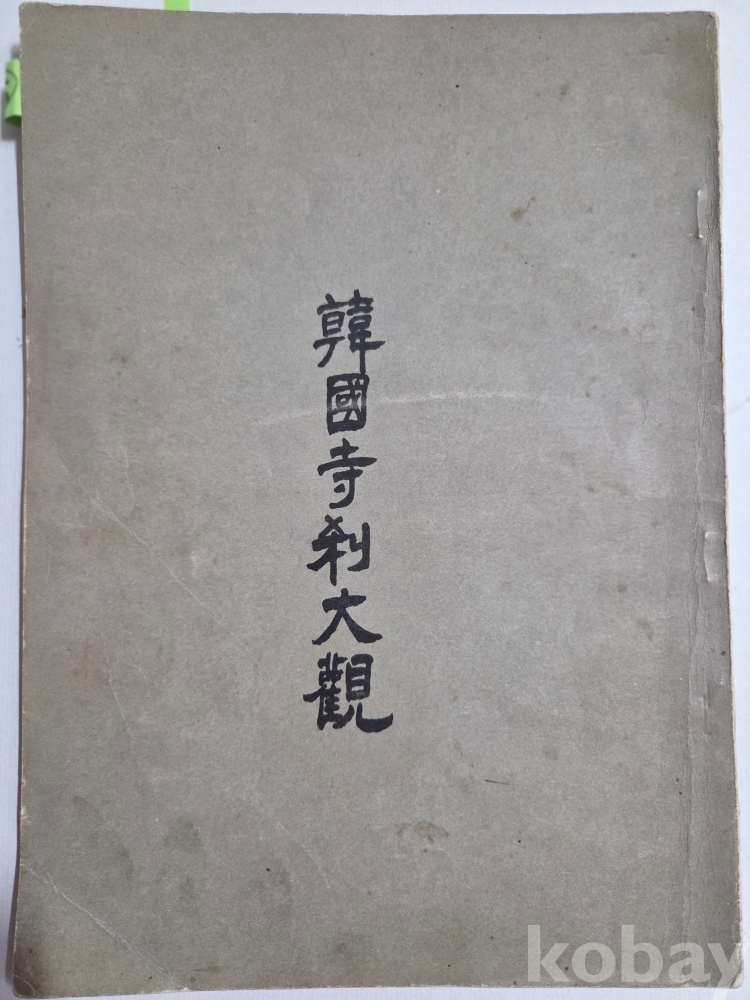 韓國寺刹大觀
kobay